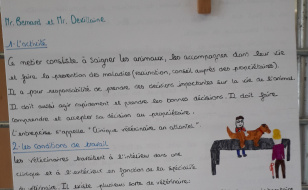 Mr. Bernard et Mr. Devillaine
1- L'activité
Ce métier consiste à soigner les animaux, les accompagner dans leur vie
et faire la prévention des maladies (vaccination, conseil auprès des propriétaires).
Il a pour responsabilité de prendre des décisions importantes sur la vie de l'animal.
Il doit aussi agir rapidement et prendre les bonnes décisions. Il doit faire
comprendre et accepter sa décision au propriétaire.
L'entreprise s'appelle "Clinique vétérinaire
2- les conditions de travail
Les vétérinaires travaillent à l'intérieur dans une
clinique et à l'extérieur en fonction de la spécialité
du vétérinaire. Il existe plusieurs sorte de vétérinaire: